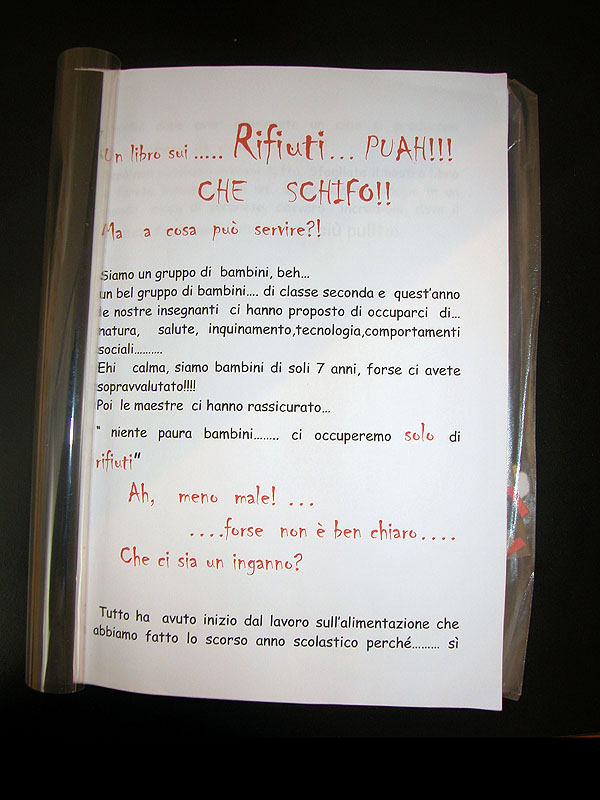 Un libro sui ..... Rifiuti... PUAH!!!
CHE SCHIFO!!
Ma a cosa può servire?!
Siamo un gruppo di bambini, beh...
un bel gruppo di bambini.... di classe seconda e quest'anno
le nostre insegnanti ci hanno proposto di occuparci di...
natura, salute, inquinamento,tecnologia,comportamenti
sociali..........
Ehi calma, siamo bambini di soli 7 anni, forse ci avete
sopravvalutato!!!!
Poi le maestre ci hanno rassicurato...
" niente paura bambini........ ci occuperemo solo di
rifiuti"
Ah, meno male! ...
....forse non è ben chiaro....
Che ci sia un inganno?
Tutto ha avuto inizio dal lavoro sull'alimentazione che
abbiamo fatto lo scorso anno scolastico perché......... sì